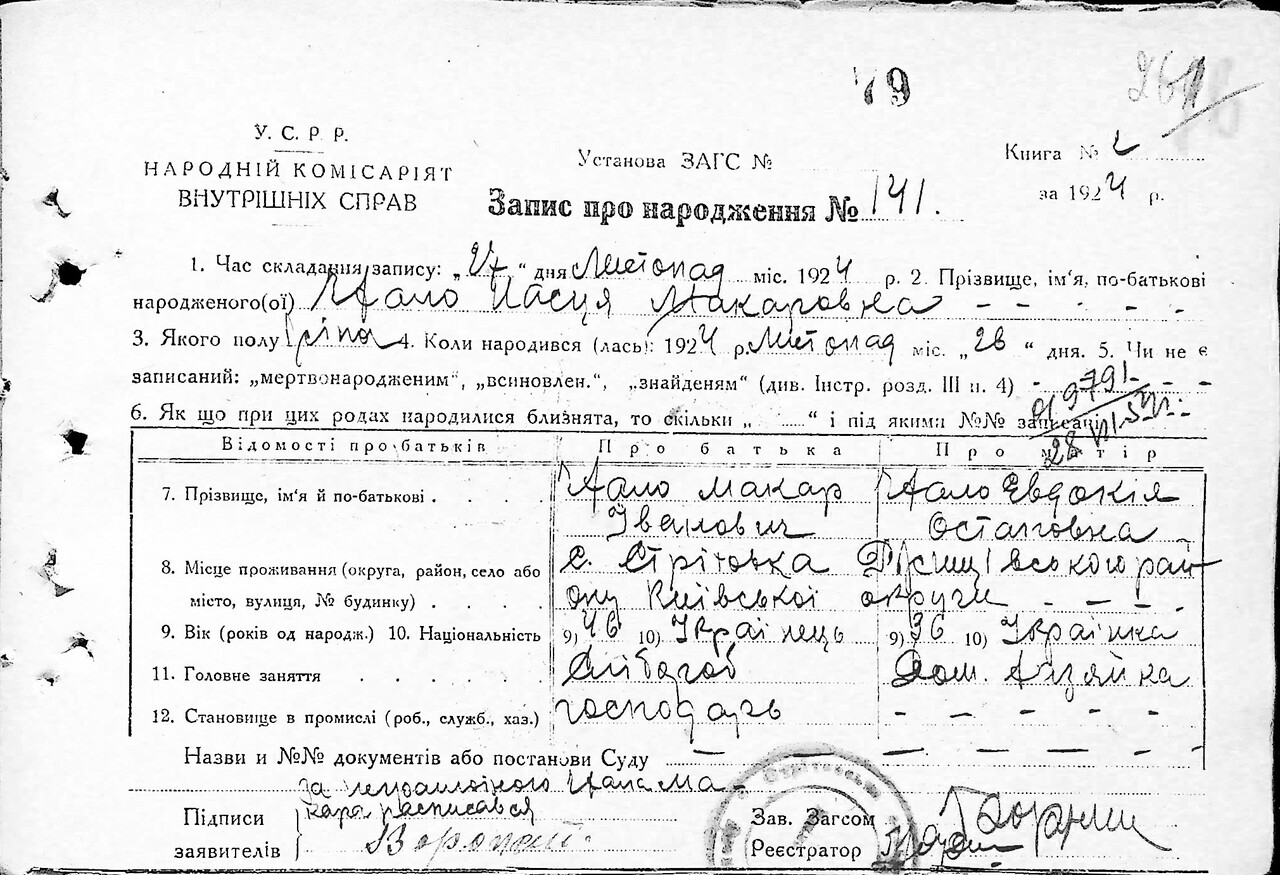 79
У. С. Р. Р.
НАРОДНІЙ КОМІСАРІЯТ
ВНУТРІШНІХ СПРАВ
Установа ЗАГС №
Книга № 2
за 1924 р.
Запис про народження № 141.
1. Час складання запису: „27“ дня Листопад міс. 1924 р. 2. Прізвище, ім'я, по-батькові
народженого(ої) Цало Макаровна – – – – –
3. Якого полу 4. Коли народився (лась): 1924 р. Листопад міс. „26“ дня. 5. Чи не є
записаний: „мертвонародженим“, „всиновлен.“, „знайденям“ (див. Інстр. розд. III п. 4) - - -
6. Як що при цих родах народилися близнята, то скільки „ ...... “ і під якими №№ записані
Відомості про батьків Про батька Про матір
7. Прізвище, ім'я й по-батькові . . . . Цало Макар Цало Евдокія
Іванович Остаповна
8. Місце проживання (округа, район, село або с. Стрітовка рай-
місто, вулиця, № будинку) . . . . ону Київської округи – – – –
9. Вік (років од народж.) 10. Національність 9) 46 10) Українець 9) 36 10) Українка
11. Головне заняття . . . . . Хлібороб Дом. хазяйка
12. Становище в промислі (роб., служб., хаз.) господарь – – – – – –
Назви и №№ документів або постанови Суду — — — — — —
за Цала Ма-
кара расписався
Підписи
заявителів
Зав. Загсом
Реєстратор